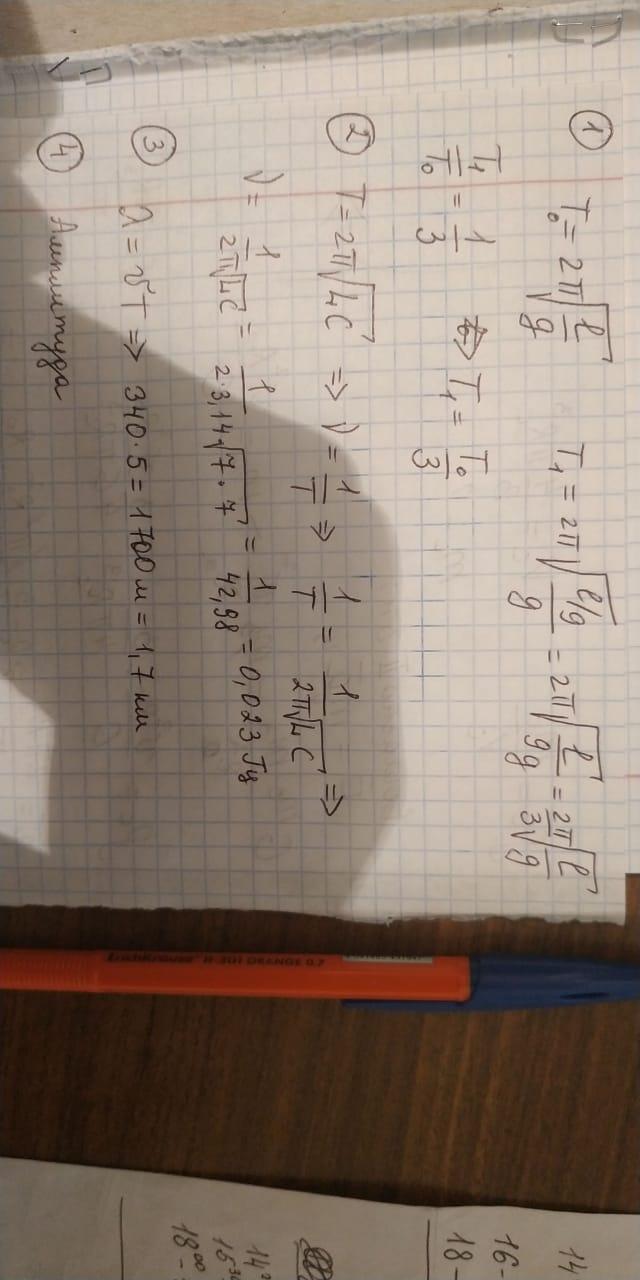 ① T₀ = 2π√(l/g) T₁ = 2π√((l/9)/g) = 2π√(l/9g) = 2π/3 √(l/g)
T₁/T₀ = 1/3 ⇔ T₁ = T₀/3
② T = 2π√LC ⇒ ν = 1/T ⇒ 1/T = 1/2π√LC ⇒
ν = 1/2π√LC = 1/2·3,14√7·7 = 1/42,98 = 0,023 Гц
③ λ = υT ⇒ 340·5 = 1700 м = 1,7 км
④ Амплитуда
ErichKrause R-301 ORANGE 0.7
14
16-
18-
18⁰⁰-